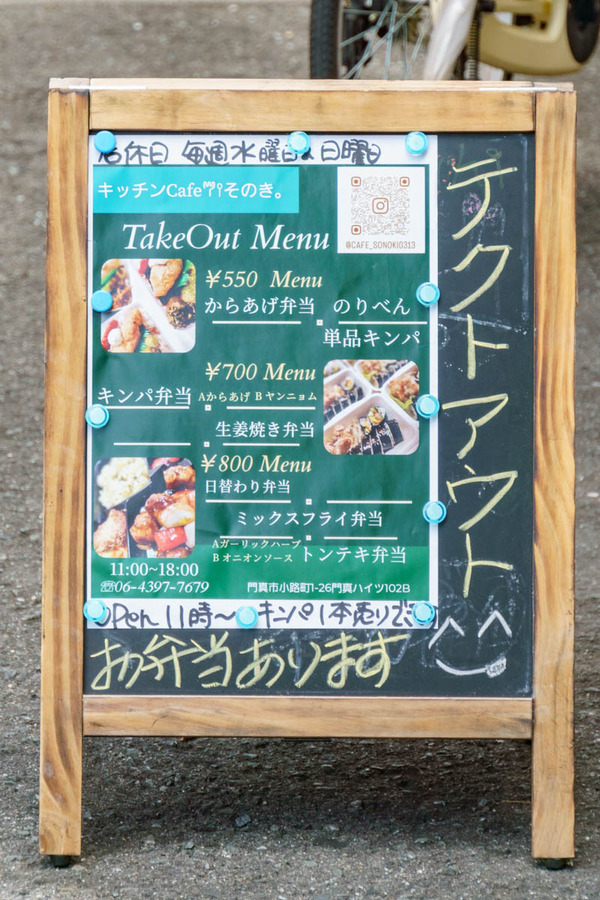 店休日 毎週水曜日&日曜日
キッチンCafe そのき。
@CAFE_SONOKI0313
TakeOut Menu
¥550 Menu
からあげ弁当 のりべん
単品キンパ
¥700 Menu
キンパ弁当 Aからあげ Bヤンニョム
生姜焼き弁当
¥800 Menu
日替わり弁当
ミックスフライ弁当
Aガーリックハーブ
Bオニオンソース トンテキ弁当
11:00~18:00
☏06-4397-7679 門真市小路町1-26門真ハイツ102B
Open 11時〜 キンパ1本売り
テクトアウト
お弁当あります